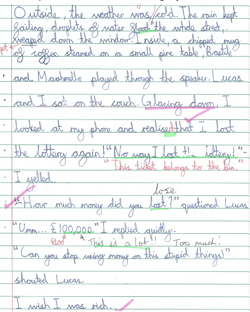 Outside, the weather was cold. The rain kept
falling, droplets of water the whole street,
down the window. Inside, a chipped mug
of coffee steamed on a small pine table. "Bastille
and Mashmello played through the speaker. Lucas
and I sat on the couch. Glacing down, I
looked at my phone and realised that I lost
the lottery again! "No way I lost lottery!" -
"This ticket belongs to the bin"
I yelled.
lose
"How much money did you lost?" questioned Lucas
"Umm... £100,000." I replied quietly.
£200 This is a lot! Too much!
"Can you stop using money on this stupid things!"
shouted Lucas.
I wish I was rich.